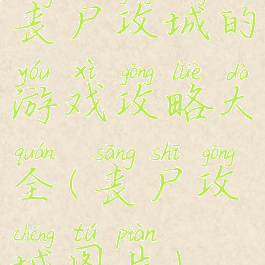 丧尸攻城的
yóu xì gōng lüè dà
游戏攻略大
quán sāng shī gōng
全(丧尸攻
chéng tú piàn
城图片)